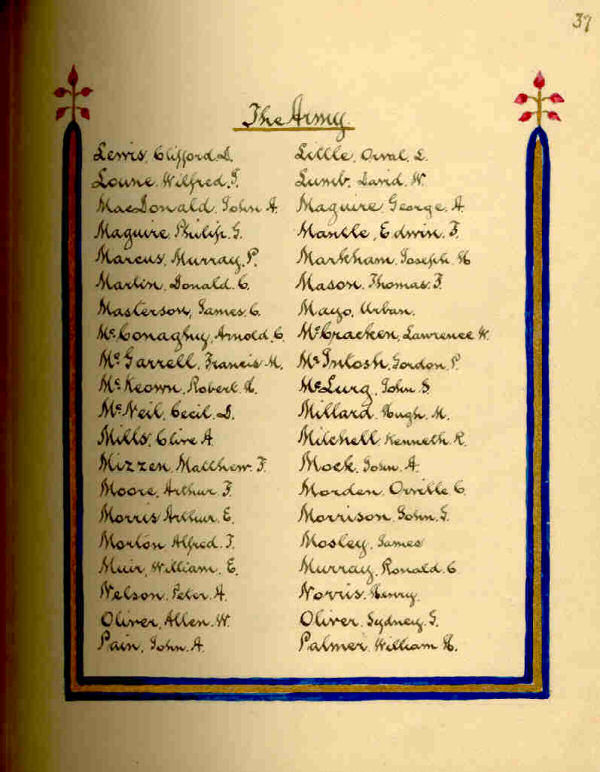 37
The Army
Lewis, Clifford D. Little, Orval. L.
Loune, Wilfred. J. Lumb, David. W.
MacDonald, John A. Maguire, George. A.
Maguire, Philip. G. Mantle, Edwin. F.
Marcus, Murray. P. Markham, Joseph. H
Martin, Donald. C. Mason, Thomas. F.
Masterson, James. C. Mayo, Urban.
McConaghy, Arnold. C McCracken, Lawrence W.
McGarrell, Francis M. McIntosh, Gordon. P.
McKeown, Robert. H. McLurg, John
McNeil, Cecil. D. Millard, Hugh. M.
Mills, Clive A Mitchell, Kenneth. R.
Mizzen, Matthew. F. Mock, John. A.
Moore, Arthur. F. Morden, Orville C.
Morris Arthur. E. Morrison, John.
Morton Alfred. Mosley, James
Muir, William. E. Murray, Ronald. C
Nelson, Peter. A. Norris, Henry.
Oliver, Allen. W. Oliver, Sydney.
Pain, John. A. Palmer, William H.